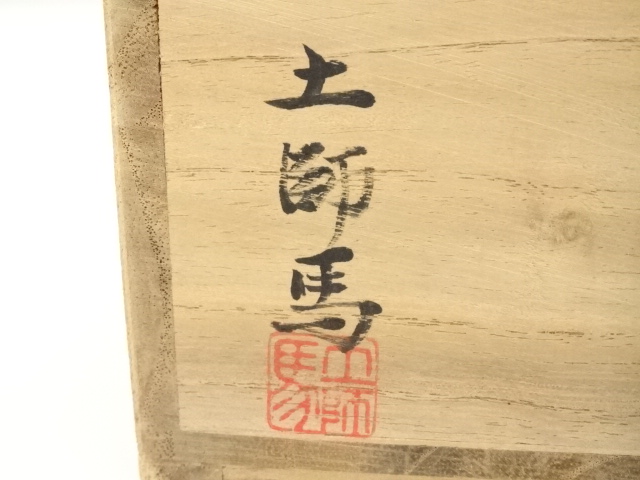 土師馬